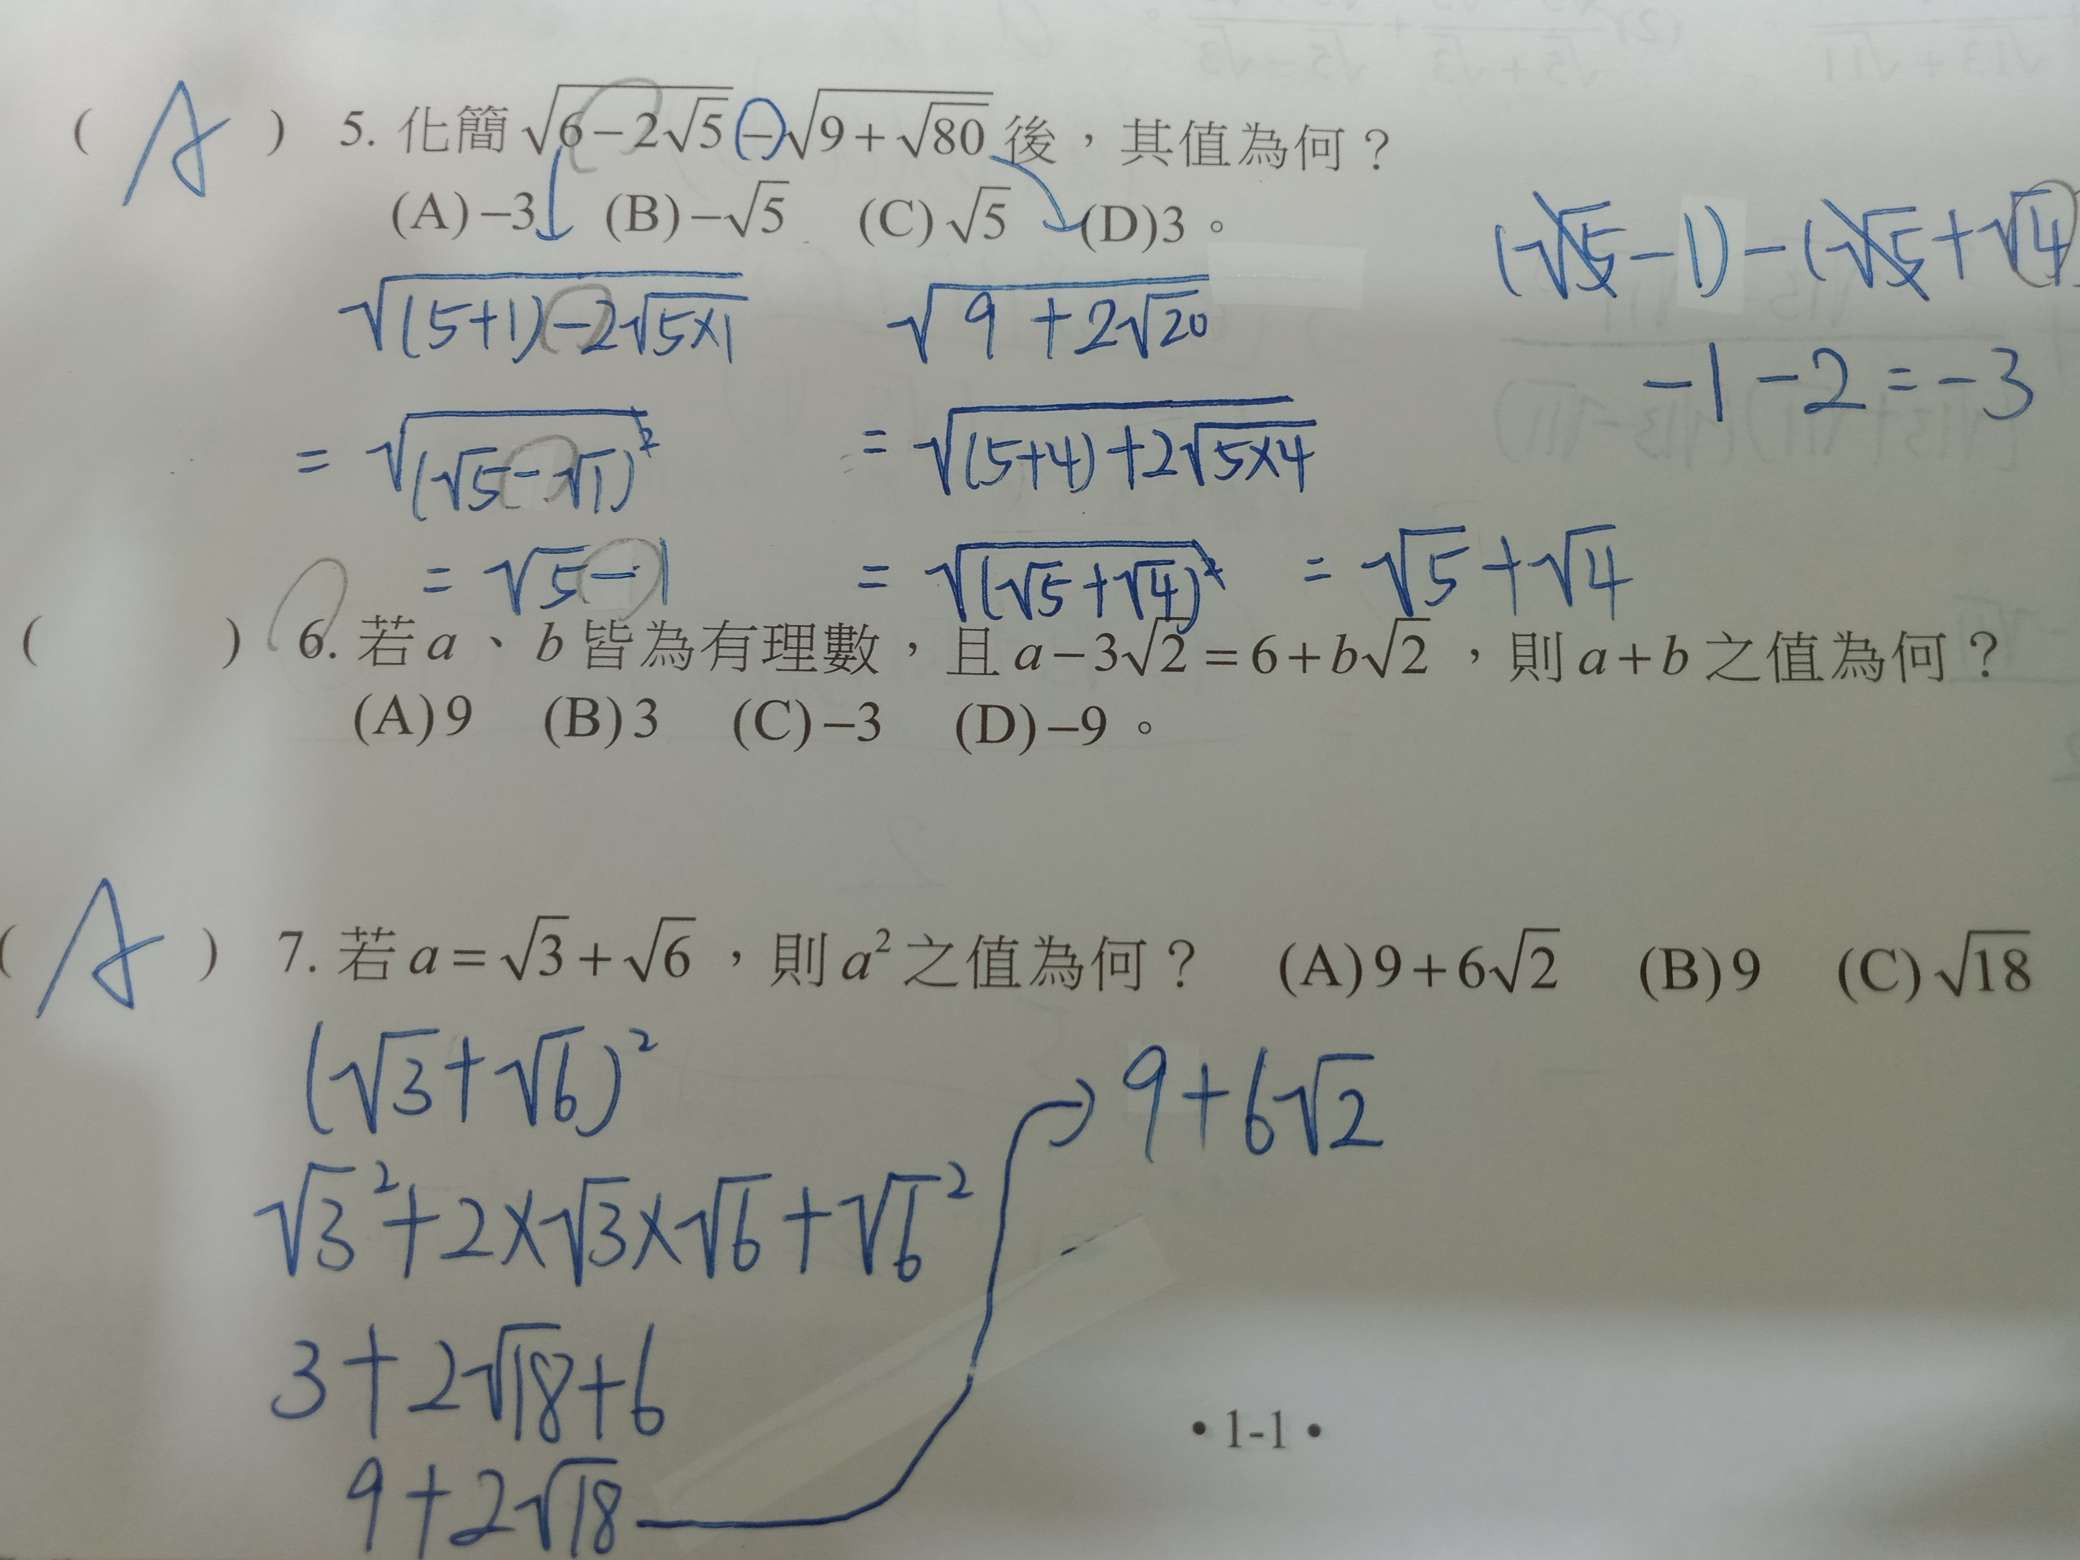 ( A ) 5. 化簡√(6−2√5)−√(9+√80)後，其值為何？
(A)−3 (B)−√5 (C)√5 (D)3。
(√5−1)−(√5+√4)
−1−2=−3
√((5+1)−2√(5×1)) √(9+2√20)
=√((√5−√1)²) =√((5+4)+2√(5×4))
=√5−1 =√((√5+√4)²) =√5+√4
( ) 6. 若a、b皆為有理數，且a−3√2=6+b√2，則a+b之值為何？
(A)9 (B)3 (C)−3 (D)−9。
( A ) 7. 若a=√3+√6，則a²之值為何？ (A)9+6√2 (B)9 (C)√18
(√3+√6)² 9+6√2
√3²+2×√3×√6+√6²
3+2√18+6
9+2√18
•1-1•